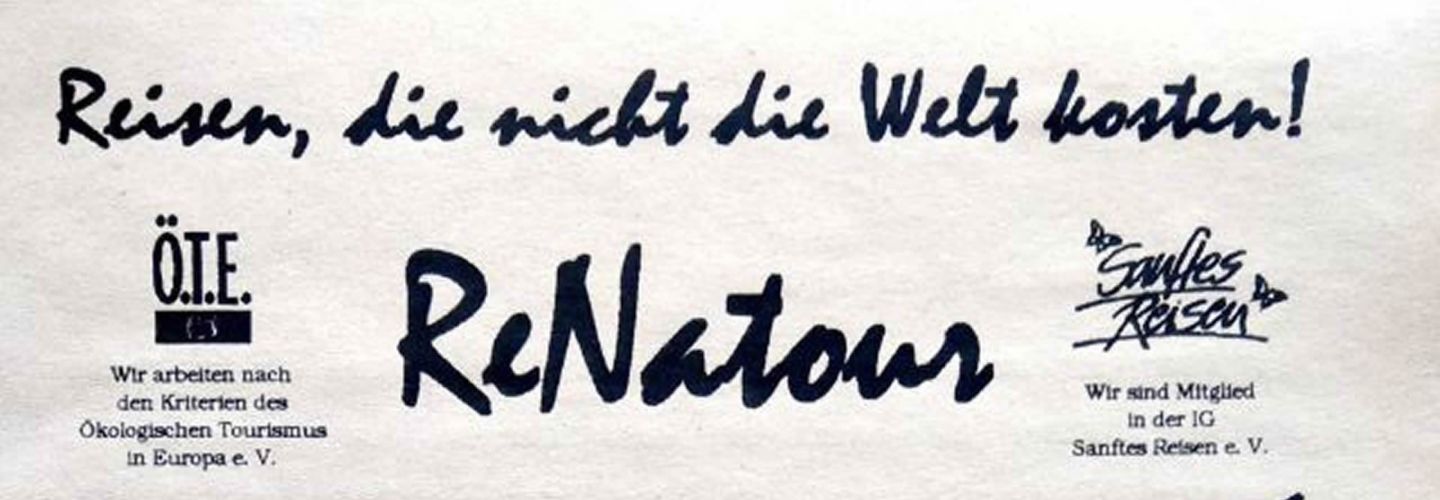 Reisen, die nicht die Welt kosten!
Ö.T.E.
Wir arbeiten nach
den Kriterien des
Ökologischen Tourismus
in Europa e. V.
ReNatour
Sanftes
Reisen
Wir sind Mitglied
in der IG
Sanftes Reisen e. V.